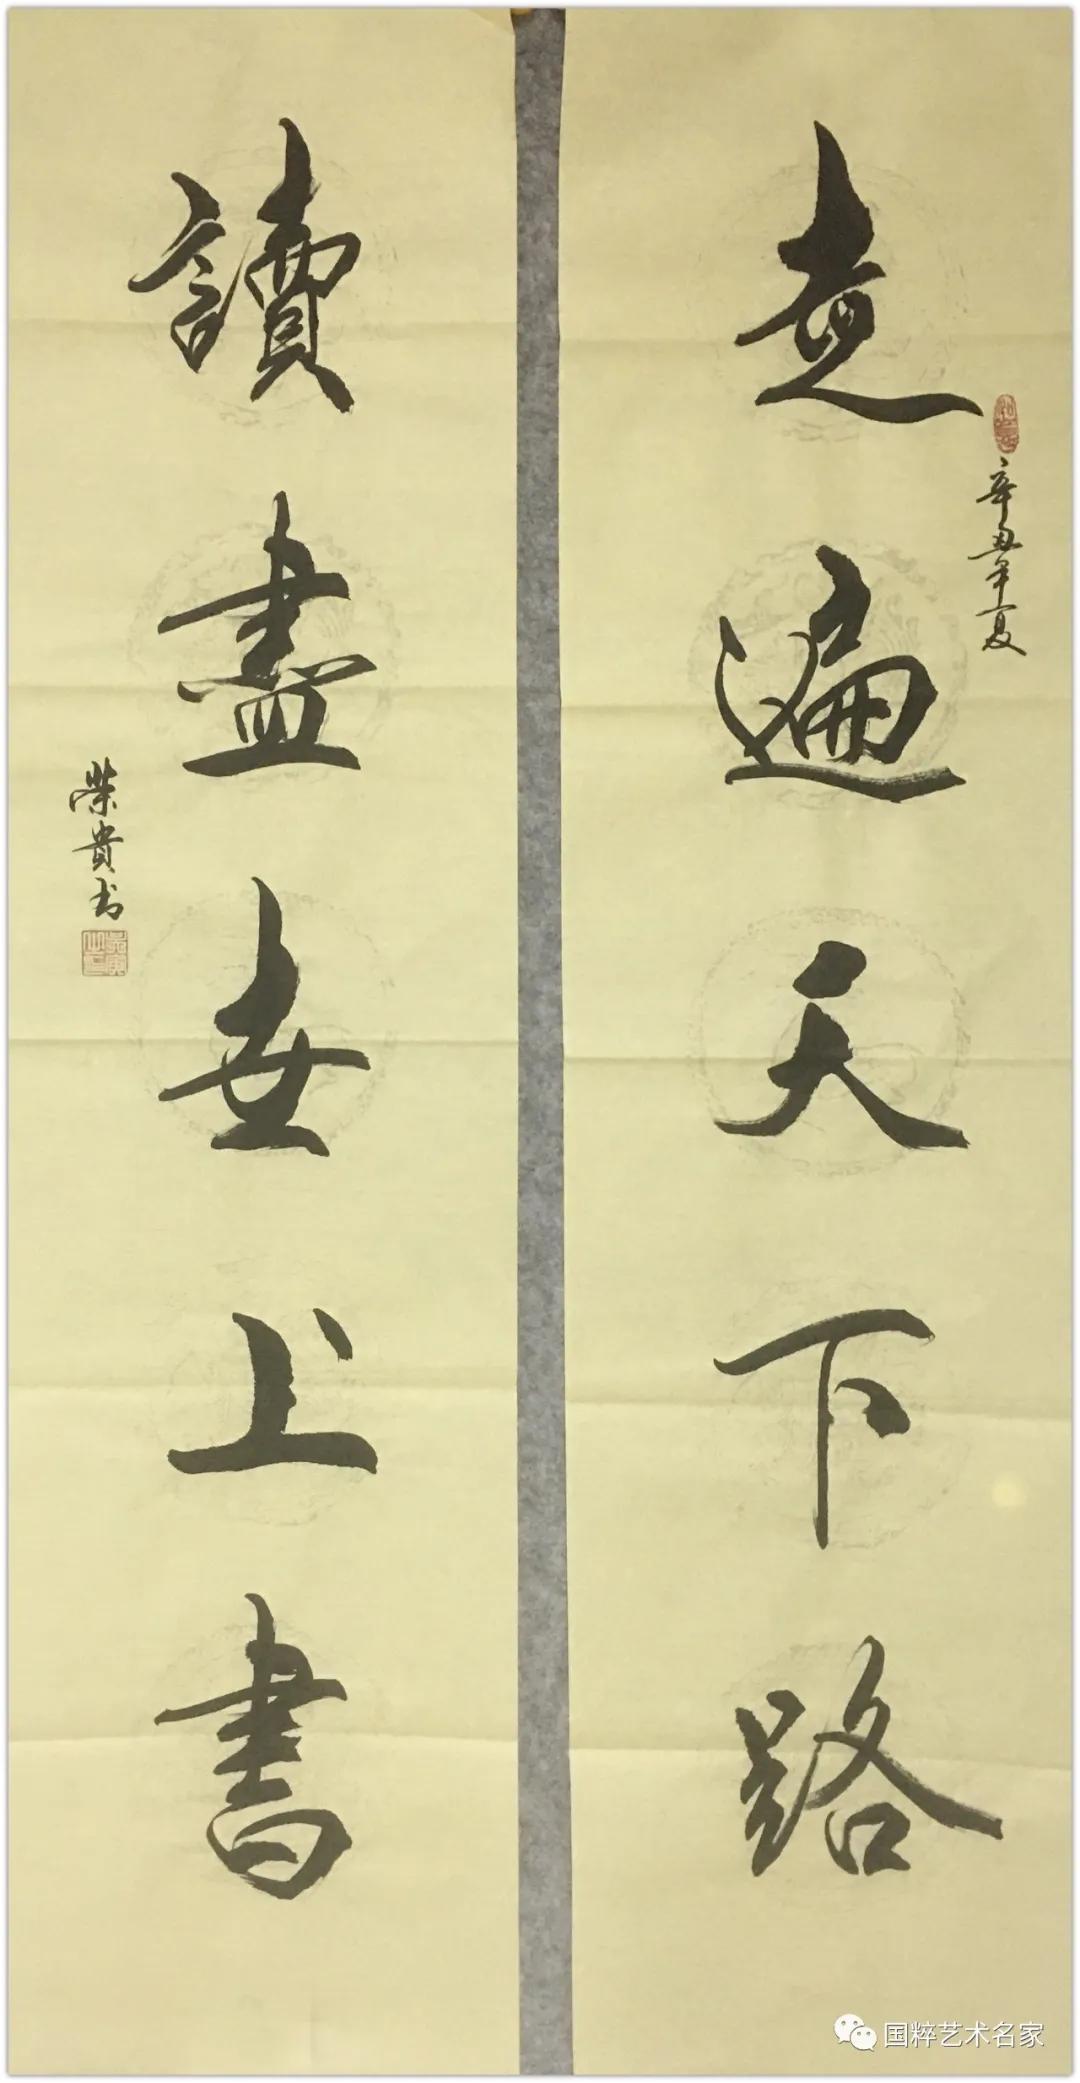 走遍天下路
辛丑年夏
讀盡世上書
榮貴书
国粹艺术名家